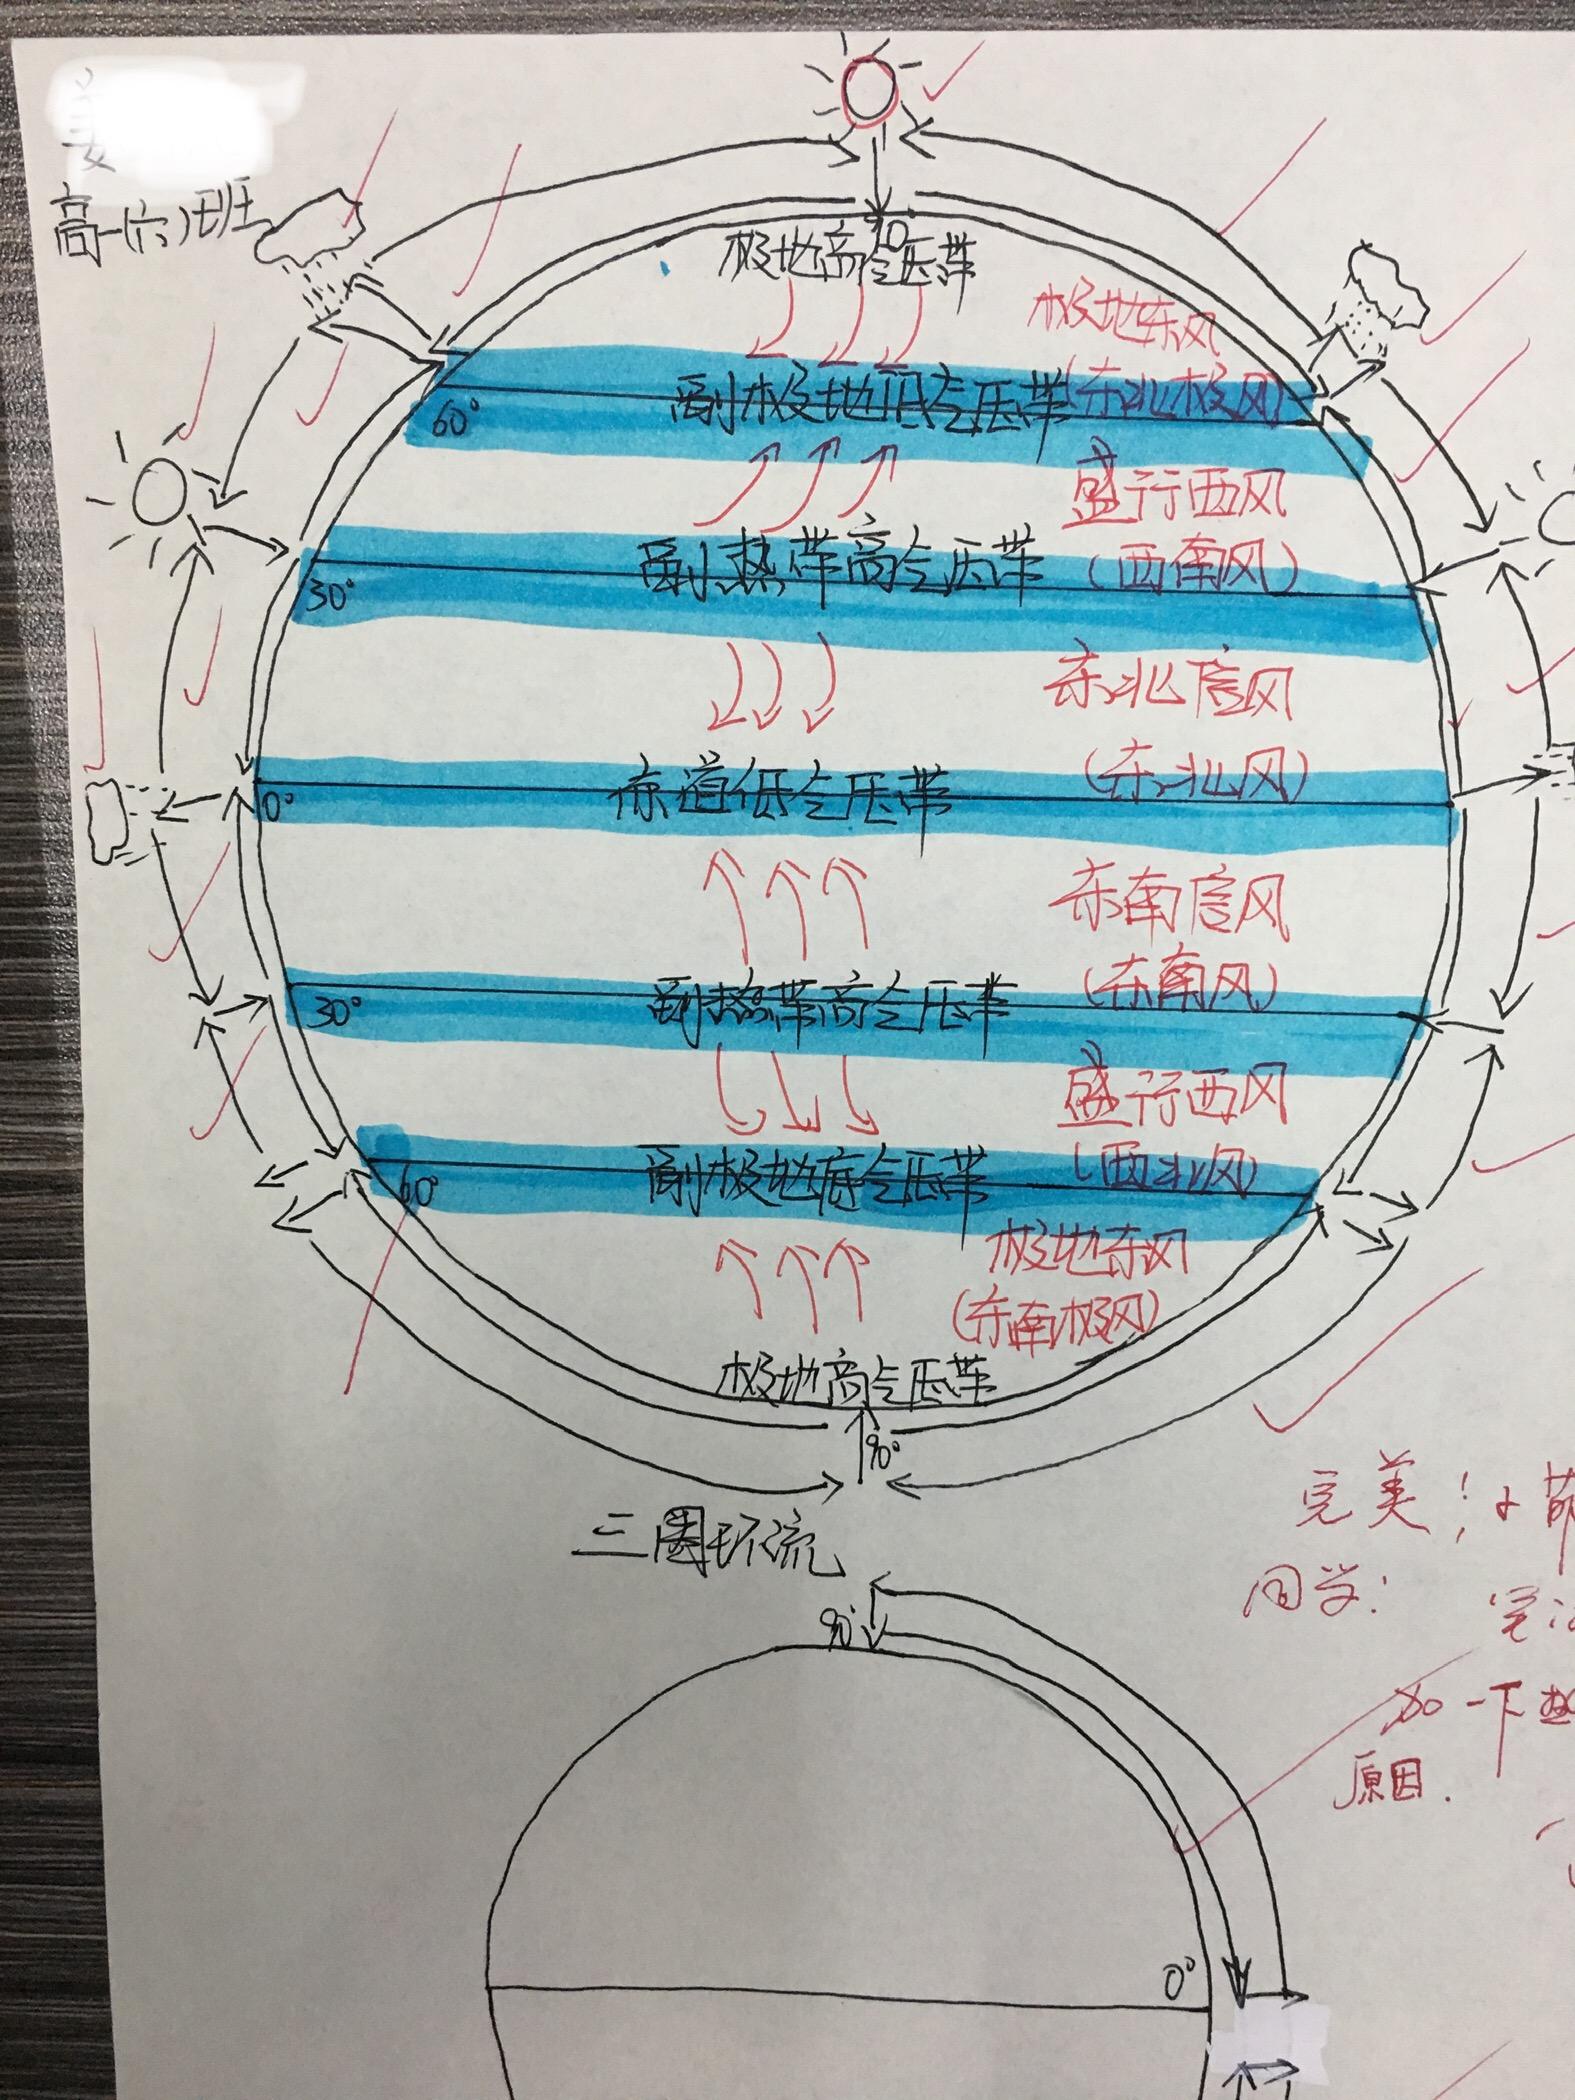 高一(六)班
90°
极地高气压带
极地东风
副极地低气压带
(东北极风)
60°
盛行西风
副热带高气压带
(西南风)
30°
东北信风
赤道低气压带
(东北风)
0°
东南信风
副热带高气压带
(东南风)
30°
盛行西风
副极地底气压带
(西北风)
60°
极地东风
(东南极风)
极地高气压带
90°
完美!
三圈环流
同学:
90°
加一下
原因.
0°